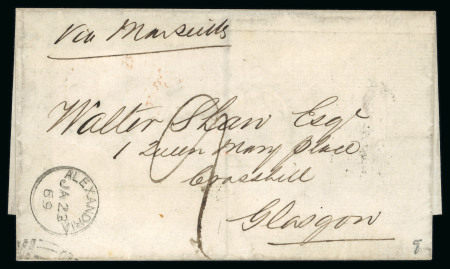 Via Marseills
Walter Shaw Esqr
1 Queen Mary Place
Crosshill
Glasgow
ALEXANDRIA
JA 23
69
9